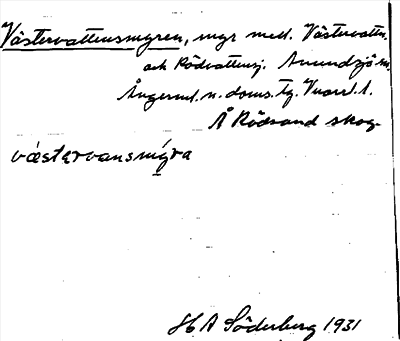 Västervattensmyren, myr mell. Västervattn.
och Rödvattensj. Anundsjö sn.
Ångerml. n. doms. tg.
Å Rödsand skog.
västərvansmýra
H A Söderberg 1931